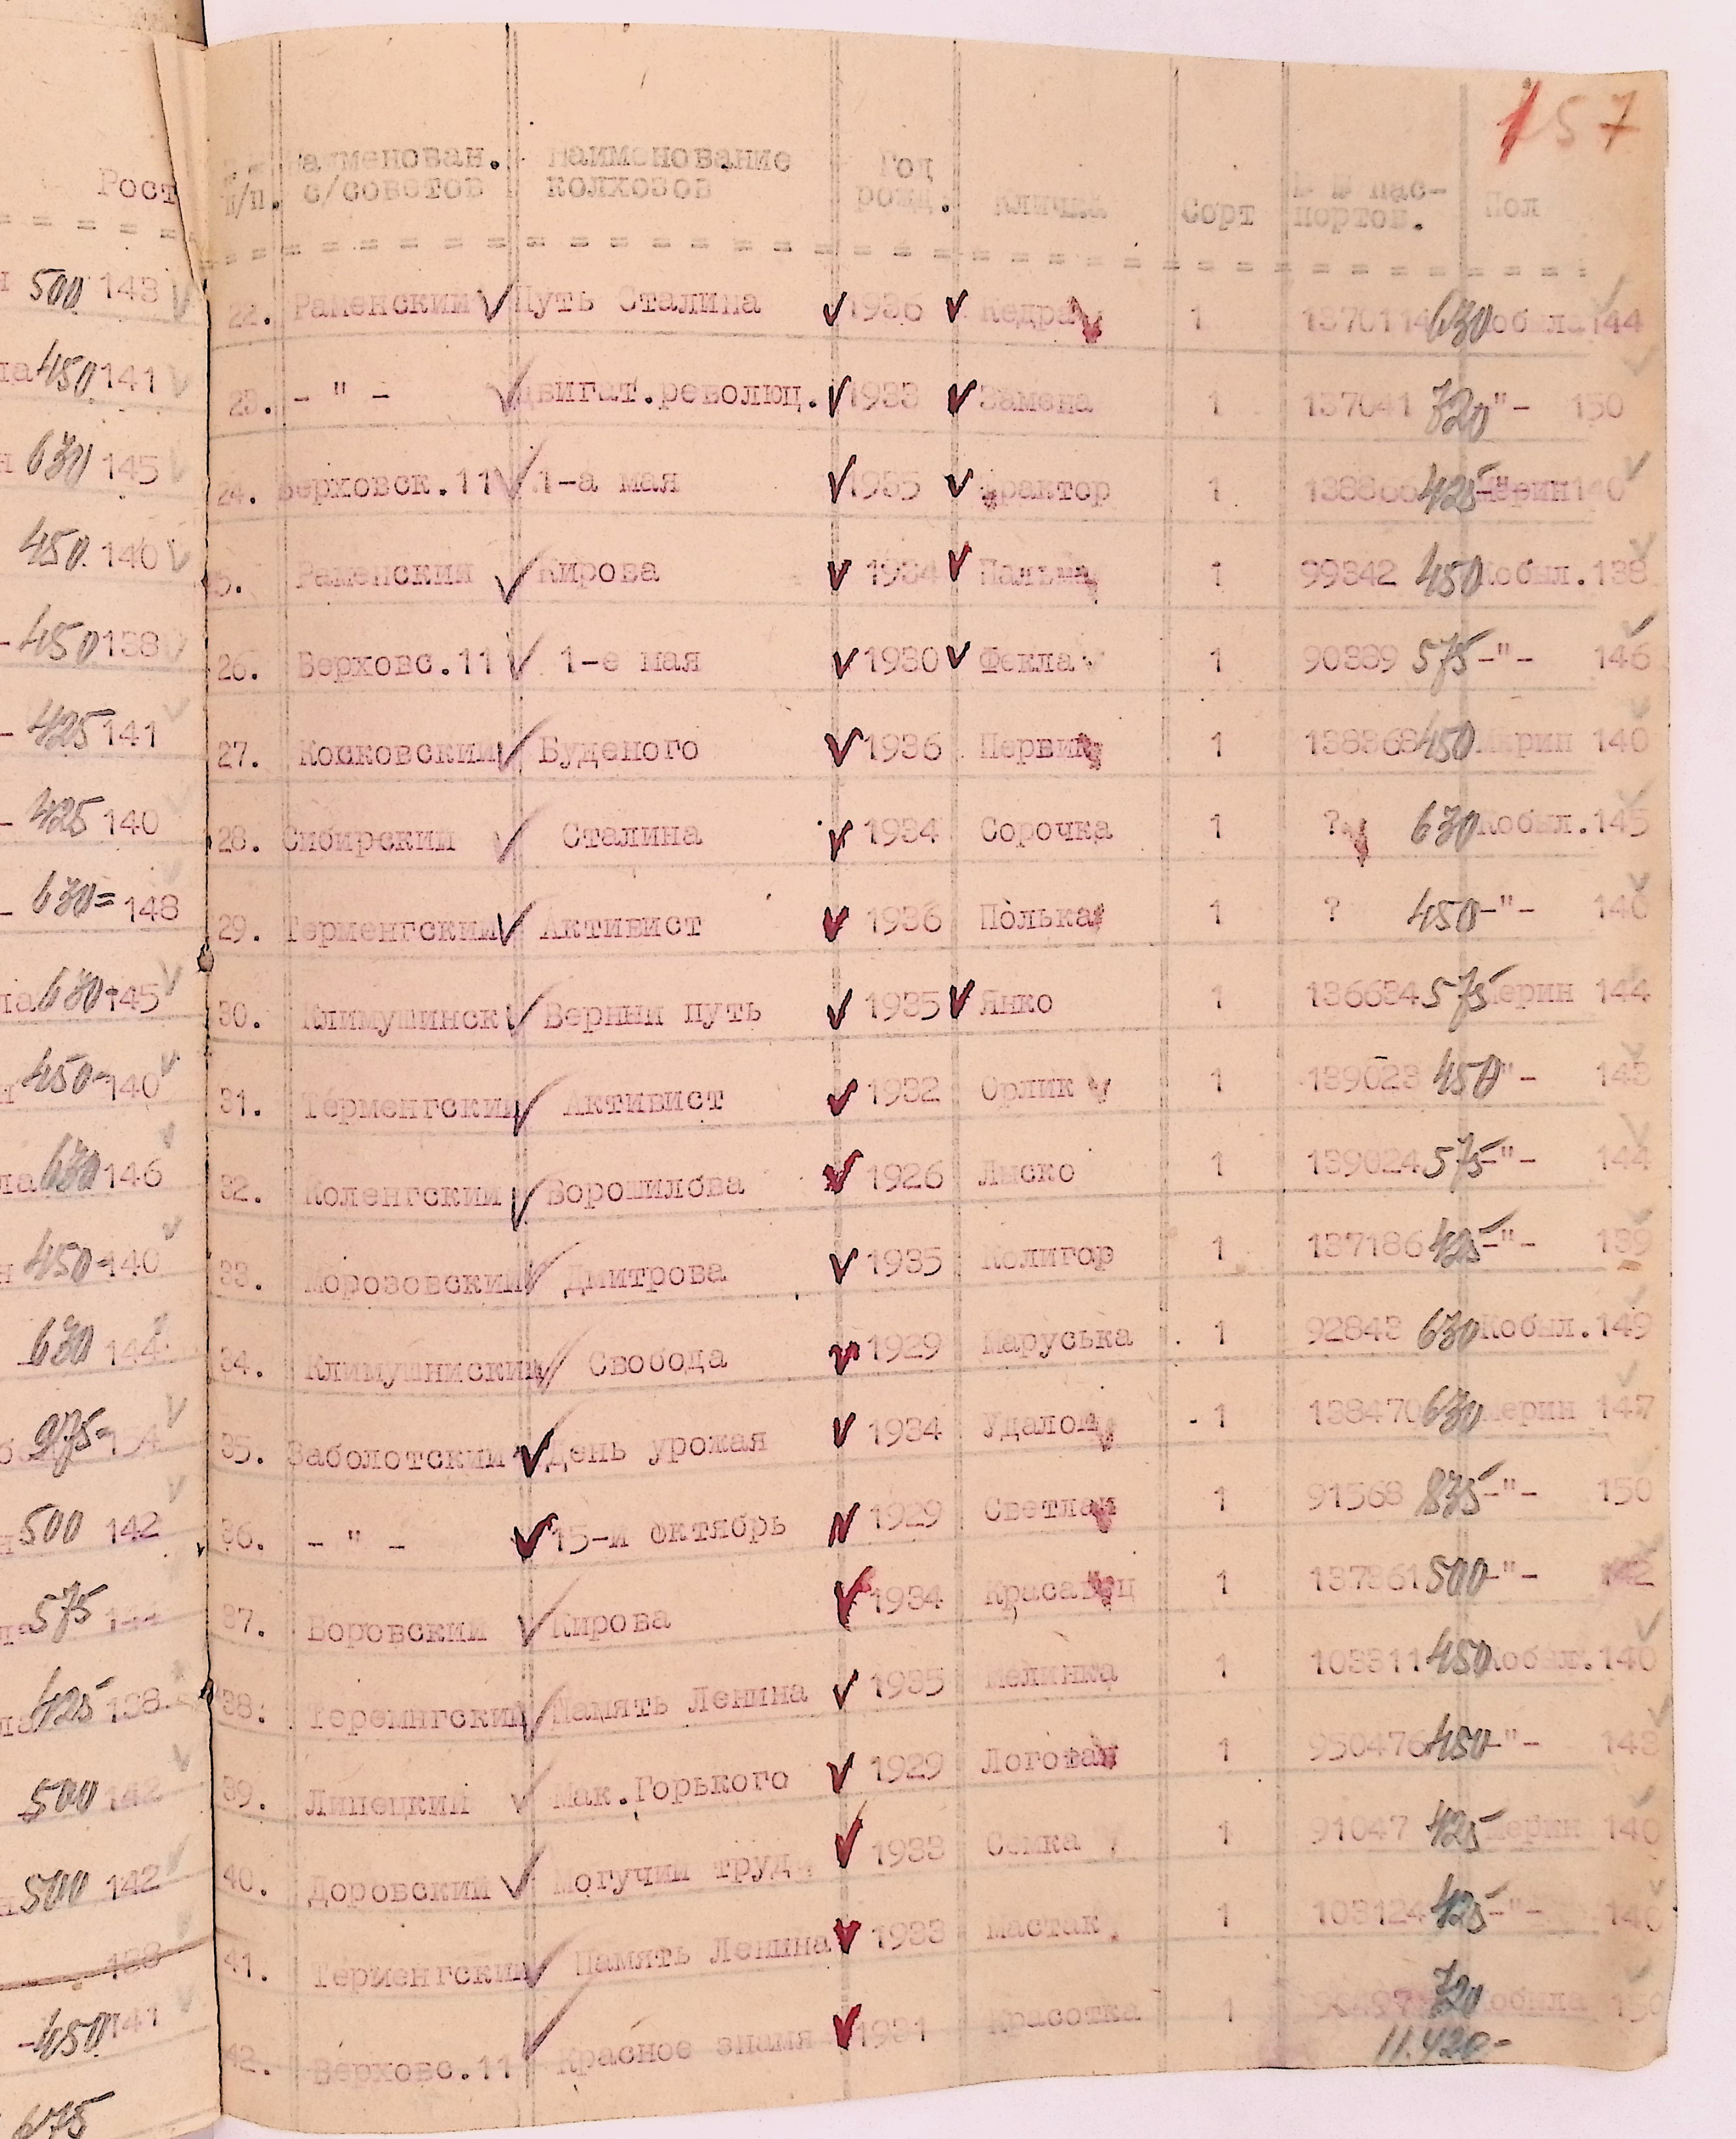 157
Рост
п/п. с/советов
наименование колхозов
Год рожд.
Кличка
Сорт
пас-портов.
Пол
500 143
22. Раменский Путь Сталина 1936 Кедра 1 137011 630 144
450 141
23. - " - Двигат.революц. 1933 Замена 1 137041 720 "- 150
630 145
24. Верховск.11 1-а мая 1935 Трактор 1 425 Мерин 140
450 140
Раменский Кирова 1934 Пальма 1 99342 450 Кобыл. 138
450 138
26. Верховс.11 1-е мая 1930 Фекла 1 90389 575 -"- 146
425 141
27. Косковский Буденого 1936 Первик 1 138368 450 Мерин 140
425 140
28. Сибирский Сталина 1934 Сорочка 1 ? 630 Кобыл. 145
630= 148
29. Терменгский Активист 1936 Полька 1 ? 450 -"- 140
630 145
30. Климушинск Верный путь 1935 Янко 1 136634 575 Мерин 144
450- 140
31. Терменгский Активист 1932 Орлик 1 139023 450 "- 143
630 146
32. Коленгский Ворошилова 1926 Лыско 1 139024 575 -"- 144
450- 140
33. Морозовский Дмитрова 1935 1 137186 425 -"- 139
630 144
34. Климушниский Свобода 1929 Маруська 1 92843 630 Кобыл. 149
975- 154
35. Заболотский День урожая 1934 Удалой 1 138470 630 Мерин 147
500 142
36. - " - 15-й октябрь 1929 Светлан 1 91568 835 -"- 150
575 144
37. Воровский Кирова 1934 Красавец 1 137361 500 -"- 142
425 138.
38. Теремнгский Память Ленина 1935 1 103311 450 Кобыл. 140
500 142
39. Липецкий Мак.Горького 1929 1 950476 450 -"- 143
500 142
40. Доровский Могучий труд 1933 Семка 1 91047 425 Мерин 140
138
41. Терменгский Память Ленина 1933 Мастак 1 103124 425 -"- 140
-450 141
42. Верховс.11 Красное знамя 1931 Красотка 1 720 Кобыла
11.420=
675